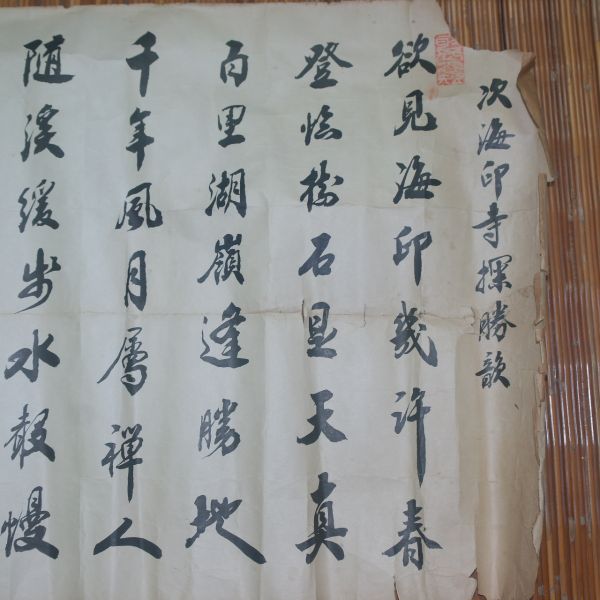 次海印寺探勝韻
欲見海印幾許春
登臨樹石昰天真
百里湖嶺逢勝地
千年風月屬禪人
随溪緩步水聲慢